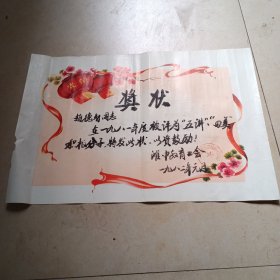 奖状
赵德智同志
在一九八一年度被评为“五讲”“四美”
积极分子，特发此状，以资鼓励！
淮中教育工会
一九八二年元月